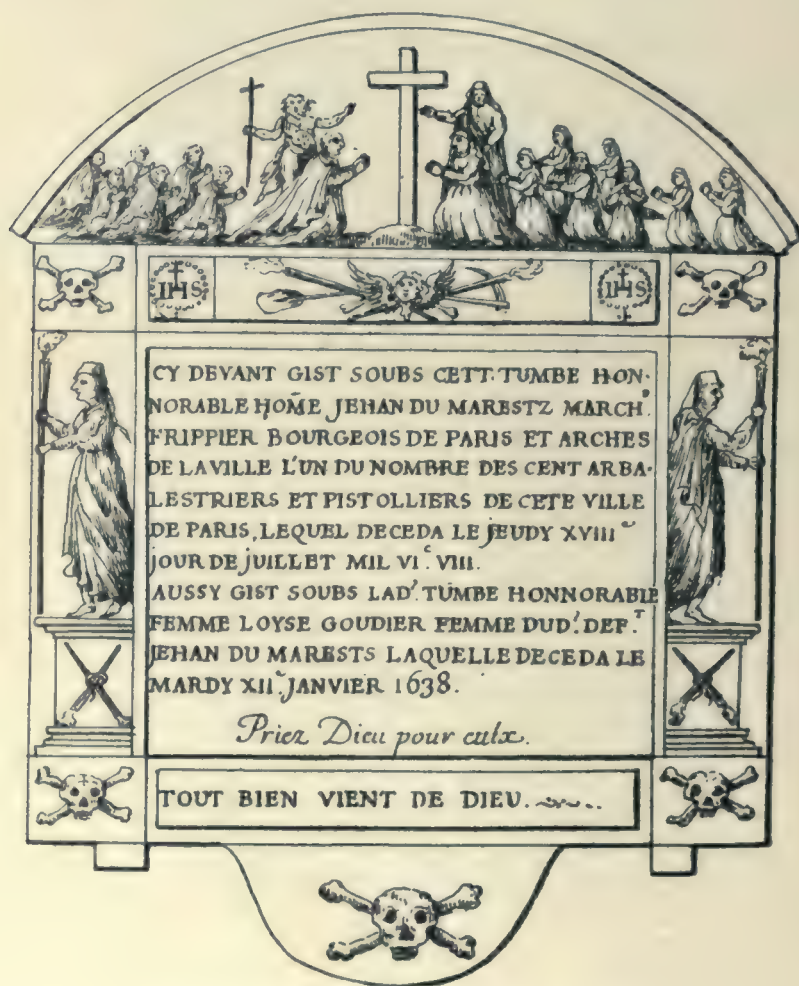 IHS IHS
CY DEVANT GIST SOUBS CETT. TUMBE HON-
NORABLE HOM̃E JEHAN DU MARESTZ MARCHT.
FRIPPIER BOURGEOIS DE PARIS ET ARCHES
DE LA VILLE L'UN DU NOMBRE DES CENT ARBA-
LESTRIERS ET PISTOLLIERS DE CETE VILLE
DE PARIS, LEQUEL DECEDA LE JEUDY XVIIIe
JOUR DE JUILLET MIL VIc. VIII.
AUSSY GIST SOUBS LADt. TUMBE HONNORABLE
FEMME LOYSE GOUDIER FEMME DUDt. DEFT.
JEHAN DU MARESTS LAQUELLE DECEDA LE
MARDY XIIe. JANVIER 1638.
Priez Dieu pour eulx.
TOUT BIEN VIENT DE DIEU.